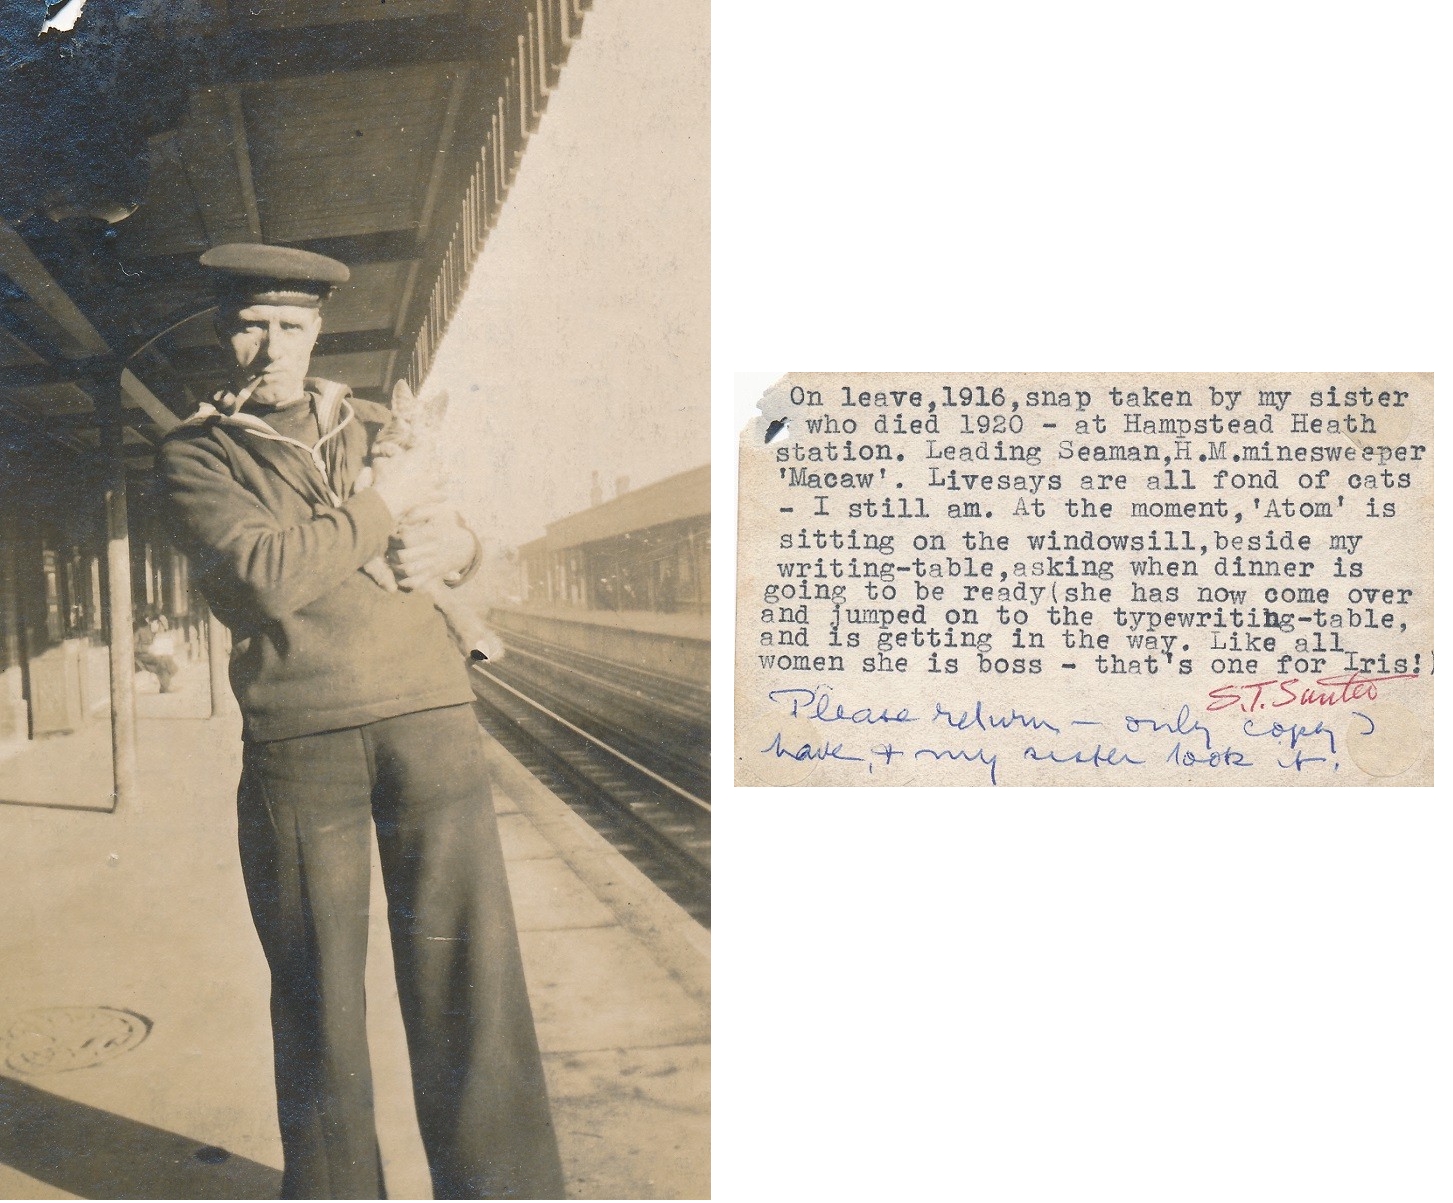 On leave,1916,snap taken by my sister
who died 1920 - at Hampstead Heath
station. Leading Seaman,H.M.minesweeper
'Macaw'. Livesays are all fond of cats
- I still am. At the moment,'Atom' is
sitting on the windowsill,beside my
writing-table,asking when dinner is
going to be ready(she has now come over
and jumped on to the typewriting-table,
and is getting in the way. Like all
women she is boss - that's one for Iris!)
Please return - only copy I
have, & my sister took it.